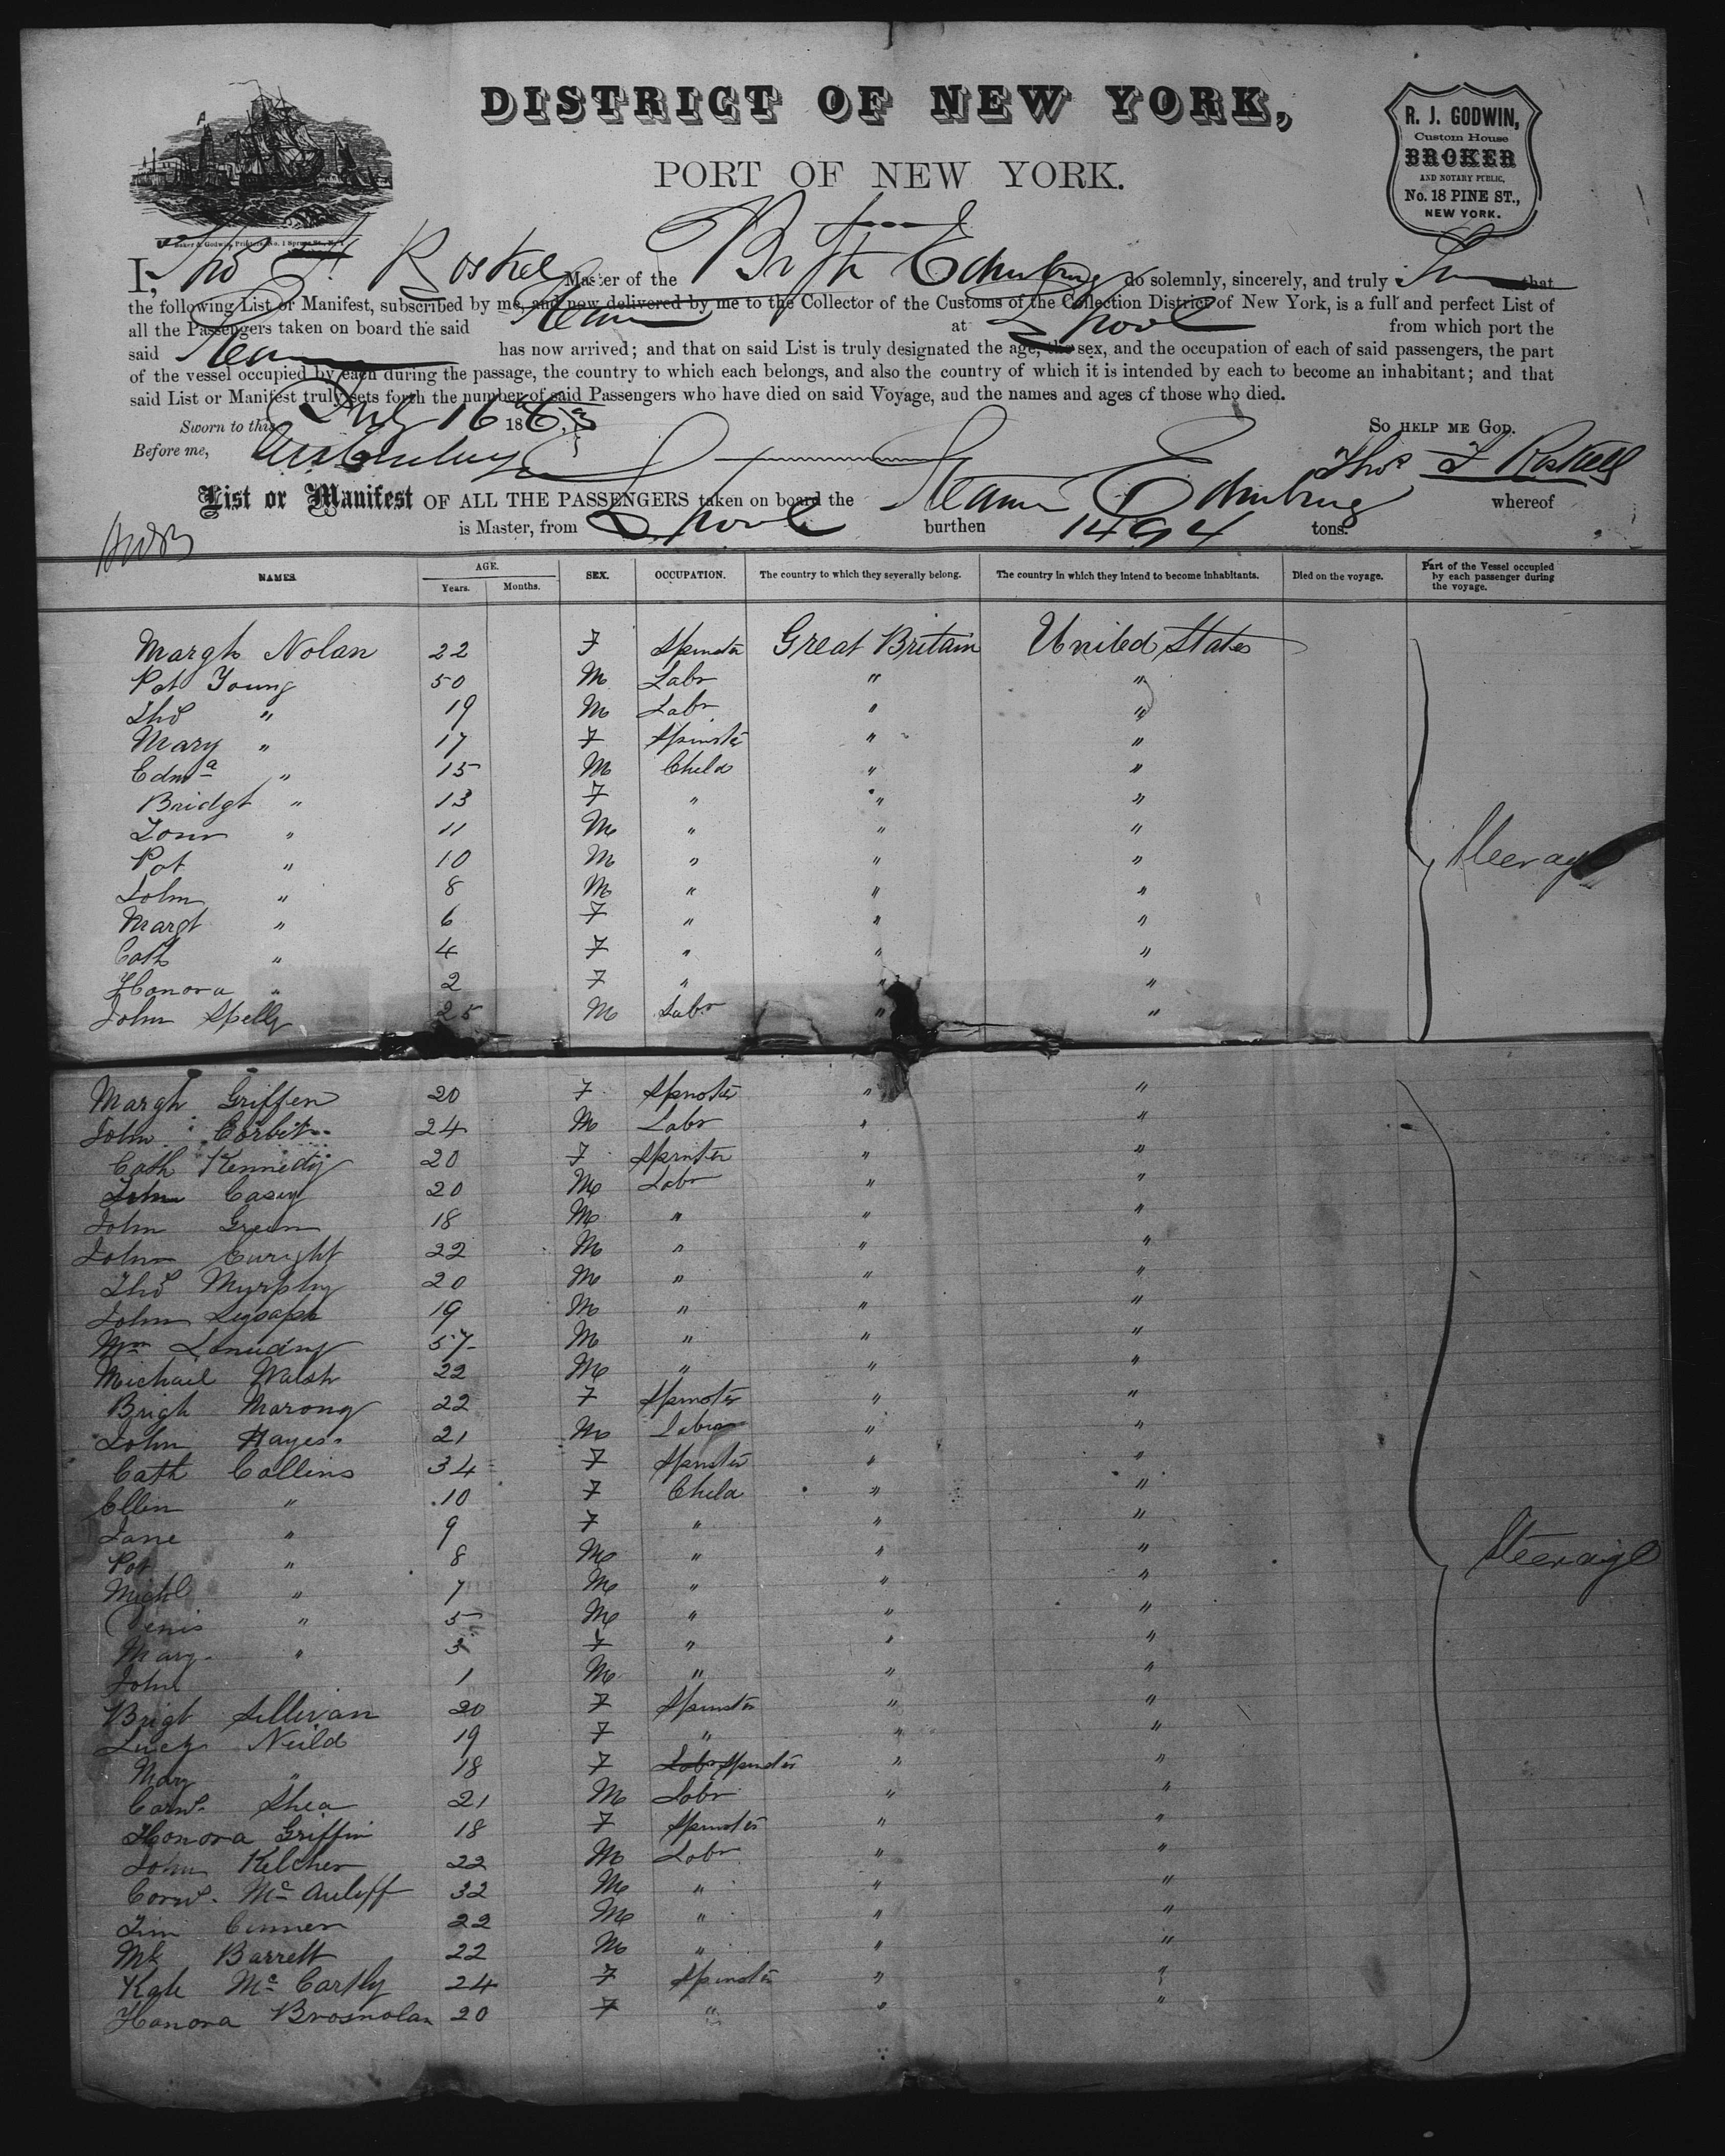 DISTRICT OF NEW YORK,
PORT OF NEW YORK.
R. J. GODWIN,
Custom House
BROKER
AND NOTARY PUBLIC,
No. 18 PINE ST.,
NEW YORK.
Baker & Godwin, Printers, No. 1 Spruce St., N. Y.
I, Thos F. Roskell Master of the Brit Edinburg do solemnly, sincerely, and truly that
the following List or Manifest, subscribed by me, and now delivered by me to the Collector of the Customs of the Collection District of New York, is a full and perfect List of
all the Passengers taken on board the said Steamer at Lpool from which port the
said Steamer has now arrived; and that on said List is truly designated the age, the sex, and the occupation of each of said passengers, the part
of the vessel occupied by each during the passage, the country to which each belongs, and also the country of which it is intended by each to become an inhabitant; and that
said List or Manifest truly sets forth the number of said Passengers who have died on said Voyage, and the names and ages of those who died.
Sworn to this 16 186 SO HELP ME GOD.
Before me, Thos F Roskell
List or Manifest OF ALL THE PASSENGERS taken on board the Steamer Edinburg whereof
is Master, from Lpool burthen 1494 tons.
NAMES. AGE. Years. Months. SEX. OCCUPATION. The country to which they severally belong. The country in which they intend to become inhabitants. Died on the voyage. Part of the Vessel occupied by each passenger during the voyage.
Margt Nolan 22 F Spinster Great Britain United States
Pat Young 50 M Labr " "
Thos " 19 M Labr " "
Mary " 17 F Spinster " "
Edmd " 15 M Child " "
Bridgt " 13 F " " "
Tom " 11 M " " "
Pat " 10 M " " " Steerage
John " 8 M " " "
Margt " 6 F " " "
Cath " 4 F " " "
Honora " 2 F " " "
John Spelly 25 M Labr " "
Margt Griffen 20 F Spinster " "
John Corbit 24 M Labr " "
Cath Kennedy 20 F Spinster " "
John Casey 20 M Labr " "
John Green 18 M " " "
John Curight 22 M " " "
Thos Myrphy 20 M " " "
John 19 M " " "
Wm 57 M " " "
Michael Walsh 22 M " " "
Brigh Marony 22 F Spinster " "
John Hayes 21 M Labr " "
Cath Collins 34 F Spinster " "
Ellen " 10 F Child " "
Jane " 9 F " " "
Pat " 8 M " " " Steerage
Michl " 7 M " " "
Denis " 5 M " " "
Mary " 3 F " " "
John 1 M " " "
Brigt Sullivan 20 F Spinster " "
Lucy Neild 19 F " " "
Mary " 18 F Labr Spinster " "
Corns. Shea 21 M Labr " "
Honora Griffin 18 F Spinster " "
John Kelcher 22 M Labr " "
Corns. Mc Auliff 32 M " " "
Tim Conner 22 M " " "
Ml Barrett 22 M " " "
Kate Mc Cartly 24 F Spinster " "
Honora Brosnolan 20 F " " "